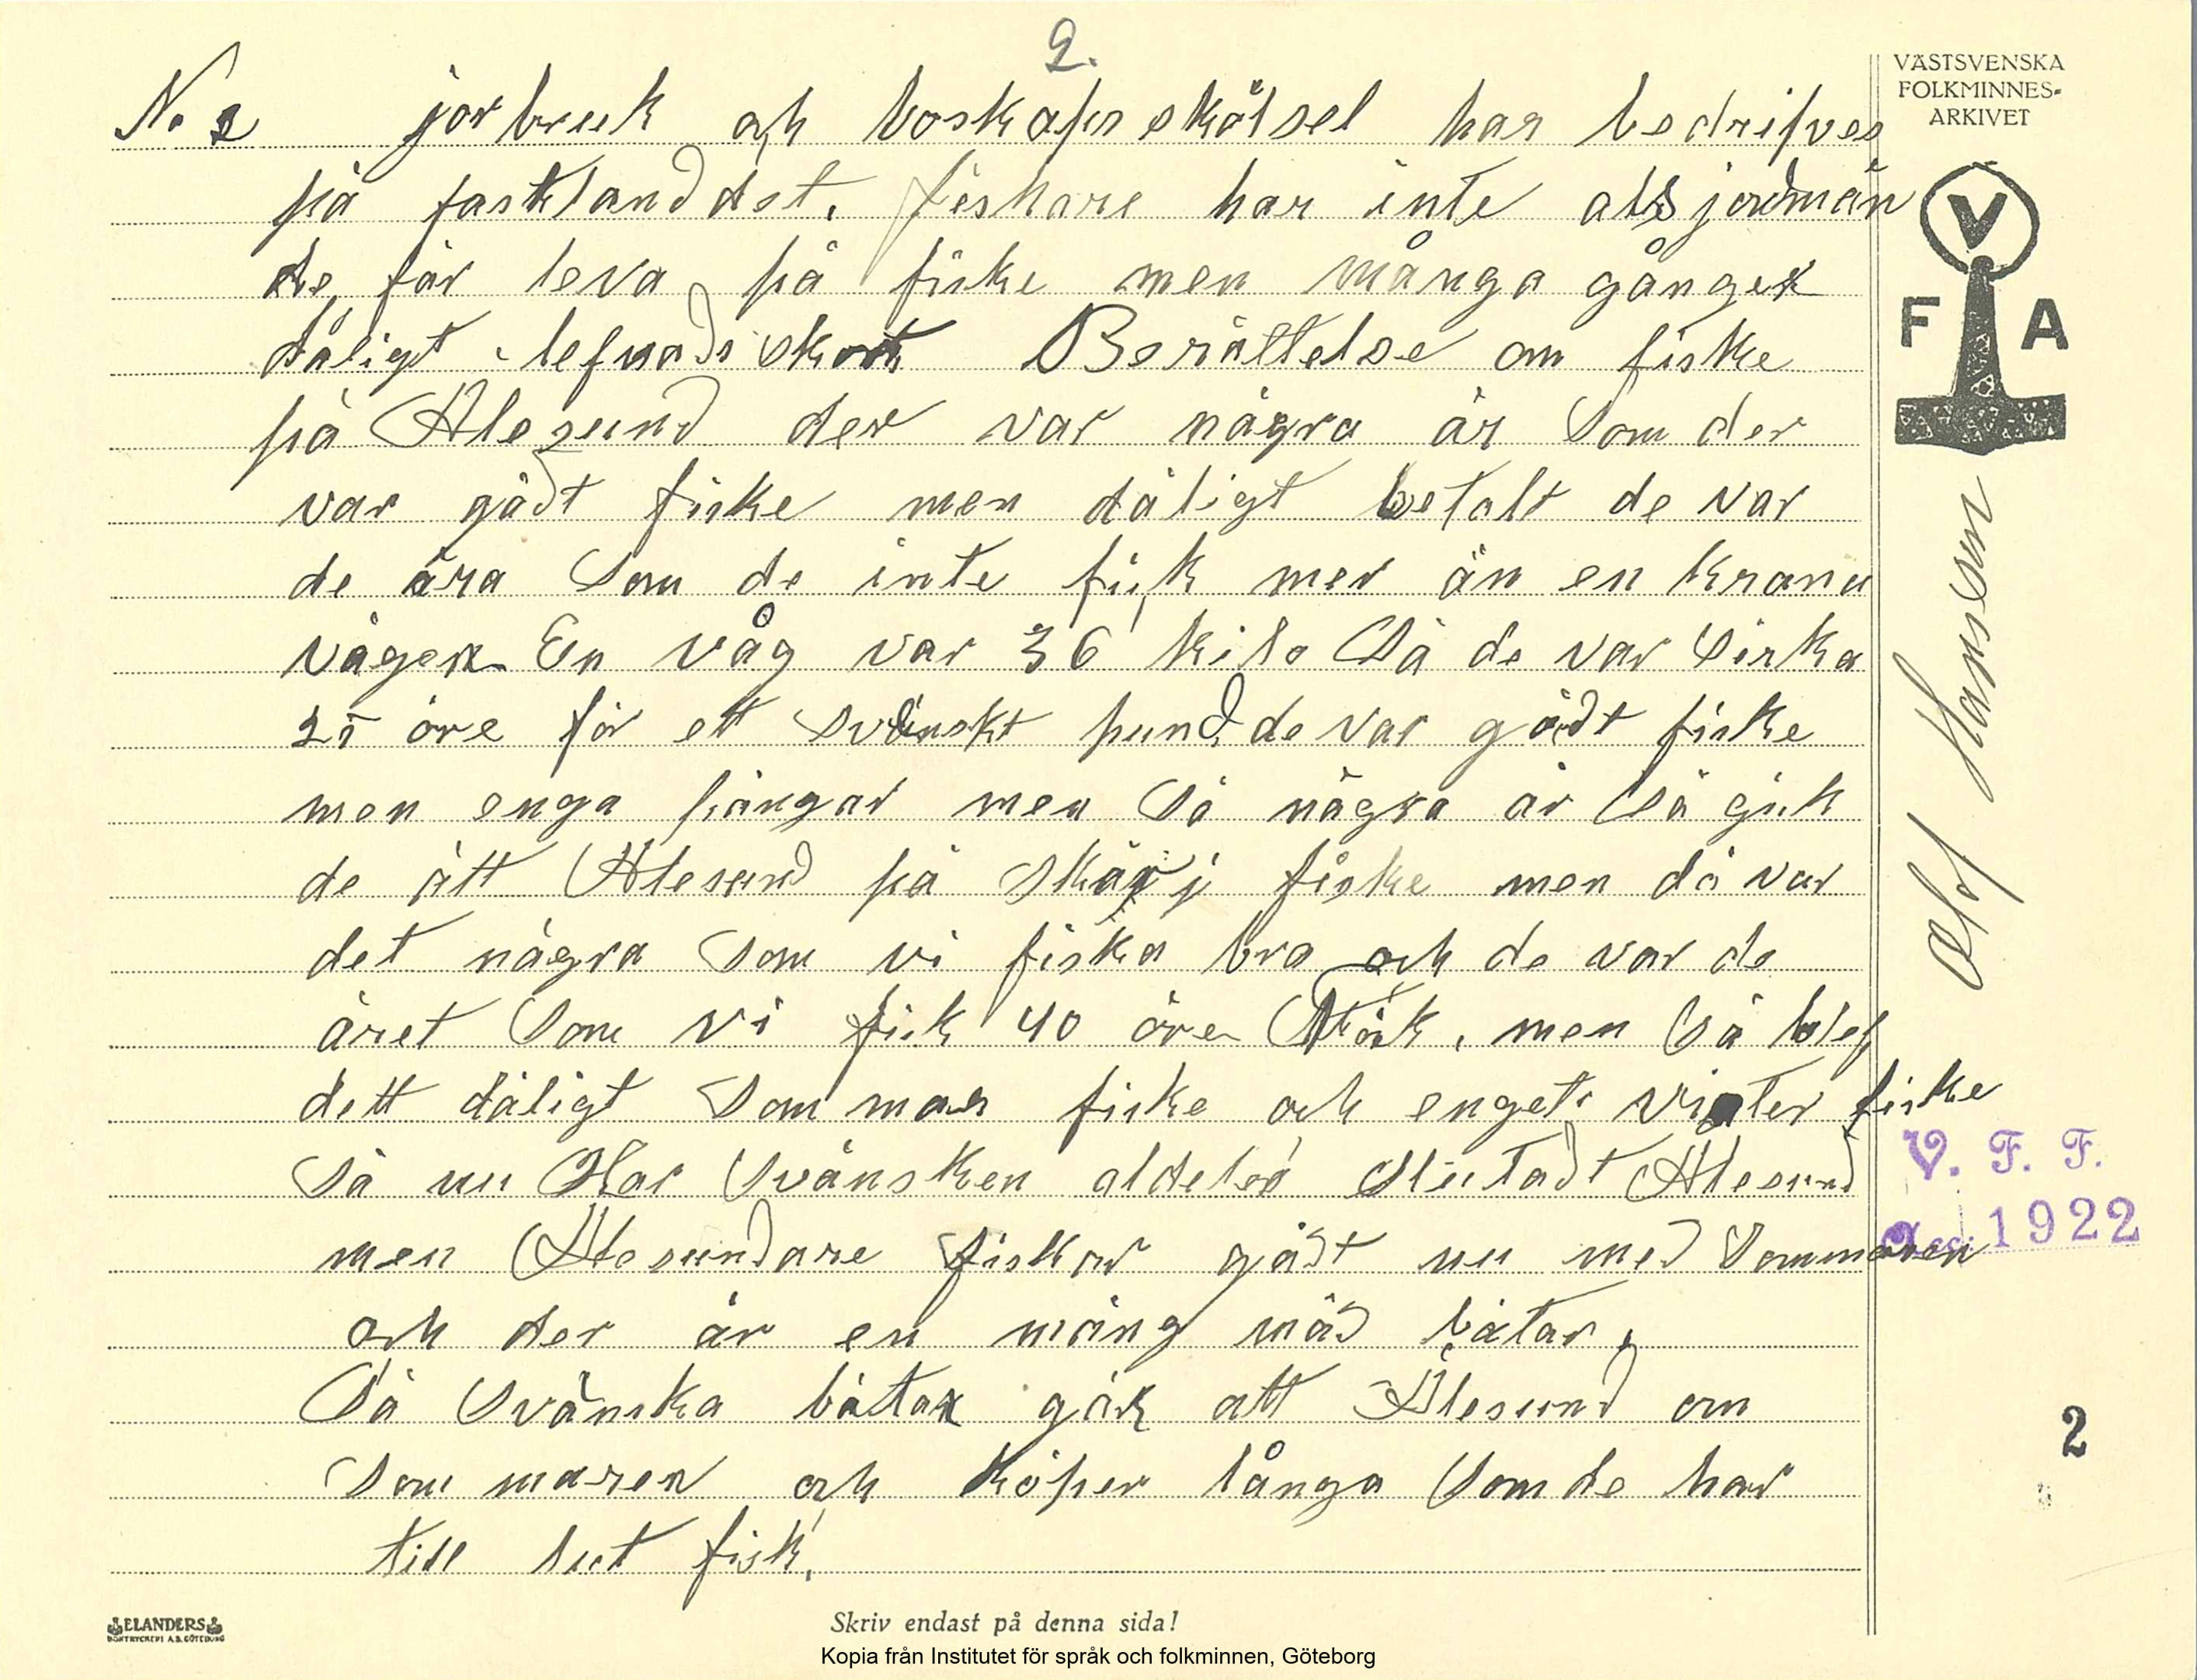 2.
VÄSTSVENSKA
FOLKMINNES-
ARKIVET
V
F A
No 2 jorbruk och boskapsskötsel har bedrifves
på fastlanddet. fiskare har inte als jordmän
de får leva på fiske men många gånger
dåligt lefnads Berättelse om fiske
på Alesund der var några år Som der
var gådt fiske men dåligt betalt de var
de åra Som de inte fick mer än en krana
vågen En våg var 36 kilo Så de var Sirka
25 öre för ett svänskt pund de var gådt fiske
men enga pängar men Så några år Så gick
de ått Alesund på fiske men då var
det några Som vi fiska bra och de var de
året Som vi fick 40 öre men Så blef
dett dåligt Sommar fiske och enget vinter fiske
Så nu Har Svänsken aldeles Slutadt Alesund
men Alesundare fiskar gådt nu med Sommaren
och der är en mäng mäd båtar.
Så Svänska båtar går att Ålesund om
Sommaren och köper långa Som de har
till lut fisk.
Olof Hansson
V. F. F.
1922
2
ELANDERS
BOKTRYCKERI A.B. GÖTEBORG
Skriv endast på denna sida!
Kopia från Institutet för språk och folkminnen, Göteborg